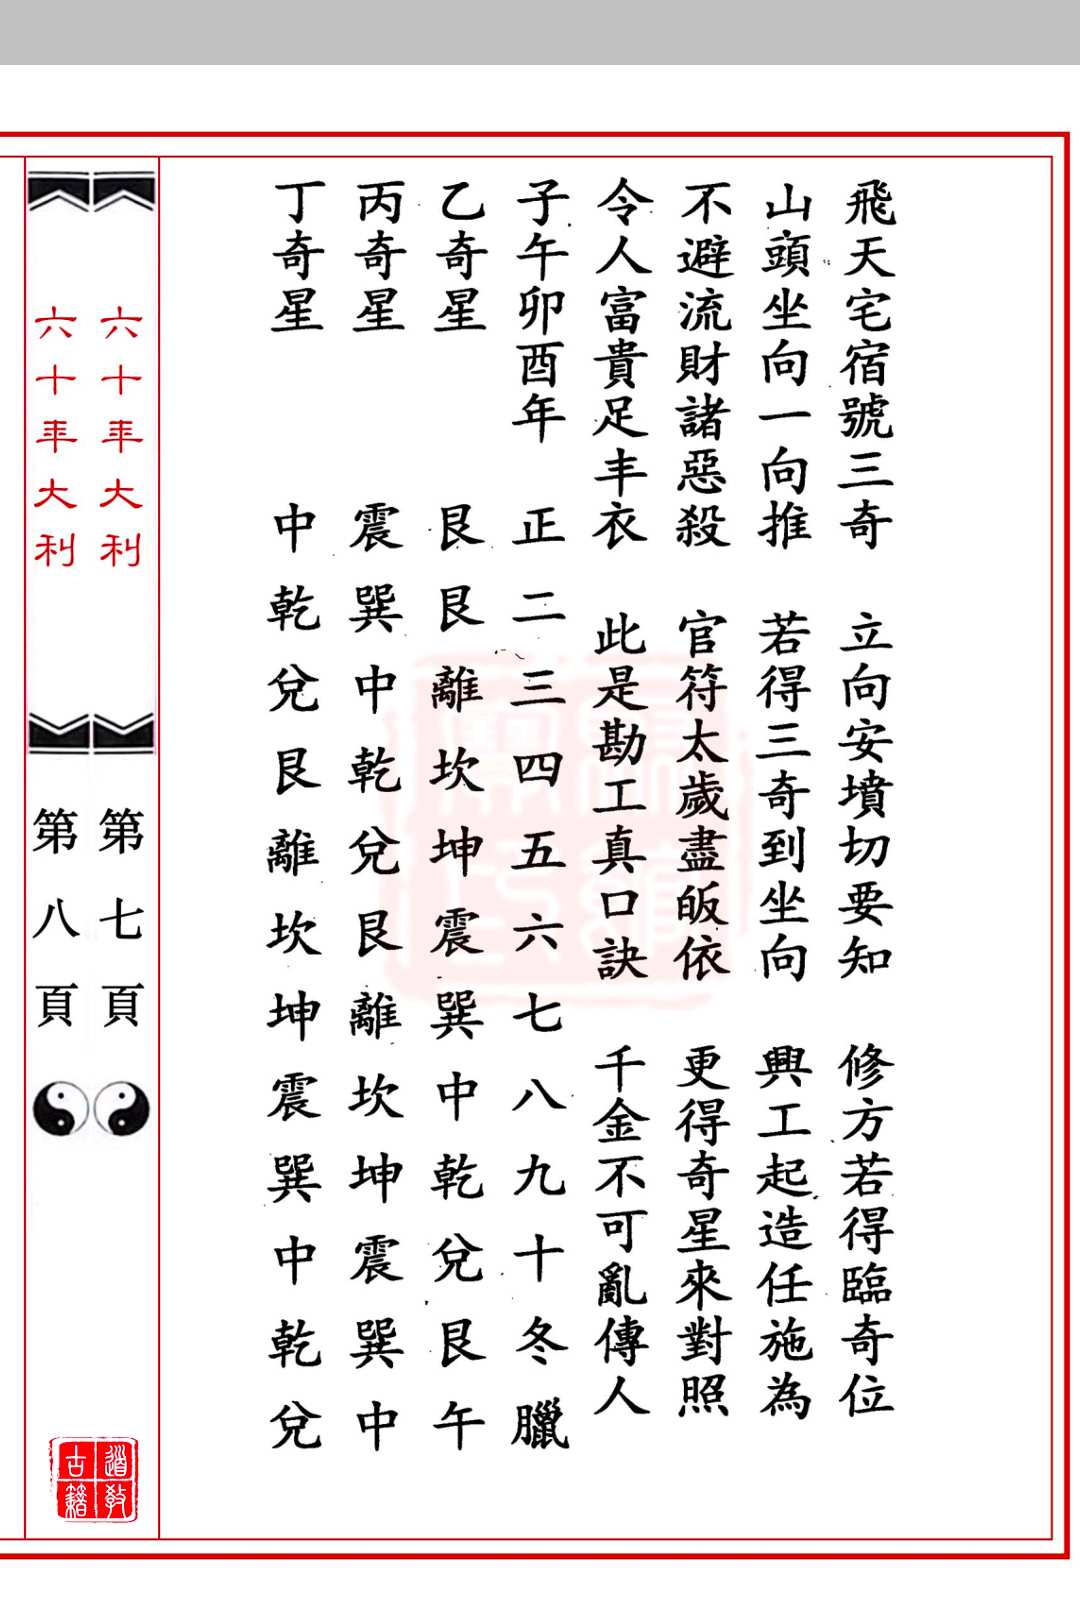 飛天宅宿號三奇 立向安墳切要知 修方若得臨奇位
山頭坐向一向推 若得三奇到坐向 興工起造任施為
不避流財諸惡殺 官符太歲盡皈依 更得奇星來對照
令人富貴足丰衣 此是勘工真口訣 千金不可亂傳人
子午卯酉年 正二三四五六七八九十冬臘
乙奇星 艮艮離坎坤震巽中乾兌艮午
丙奇星 震巽中乾兌艮離坎坤震巽中
丁奇星 中乾兌艮離坎坤震巽中乾兌
六十年大利 第七頁
六十年大利 第八頁
道教
古籍